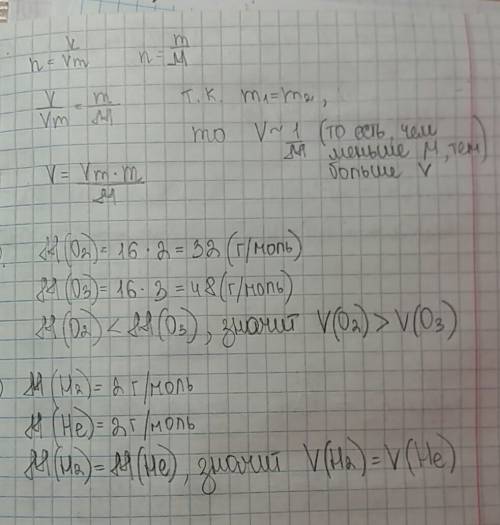 n = V/Vm   n = m/M
V/Vm = m/M   т.к. m₁=m₂,
то V~1/M (то есть, чем
меньше M, тем
больше V
V = Vm·m/M
M(O₂) = 16 · 2 = 32 (г/моль)
M(O₃) = 16 · 3 = 48 (г/моль)
M(O₂) < M(O₃), значит V(O₂) > V(O₃)
M(H₂) = 2 г/моль
M(He) = 2 г/моль
M(H₂) = M(He), значит V(H₂) = V(He)